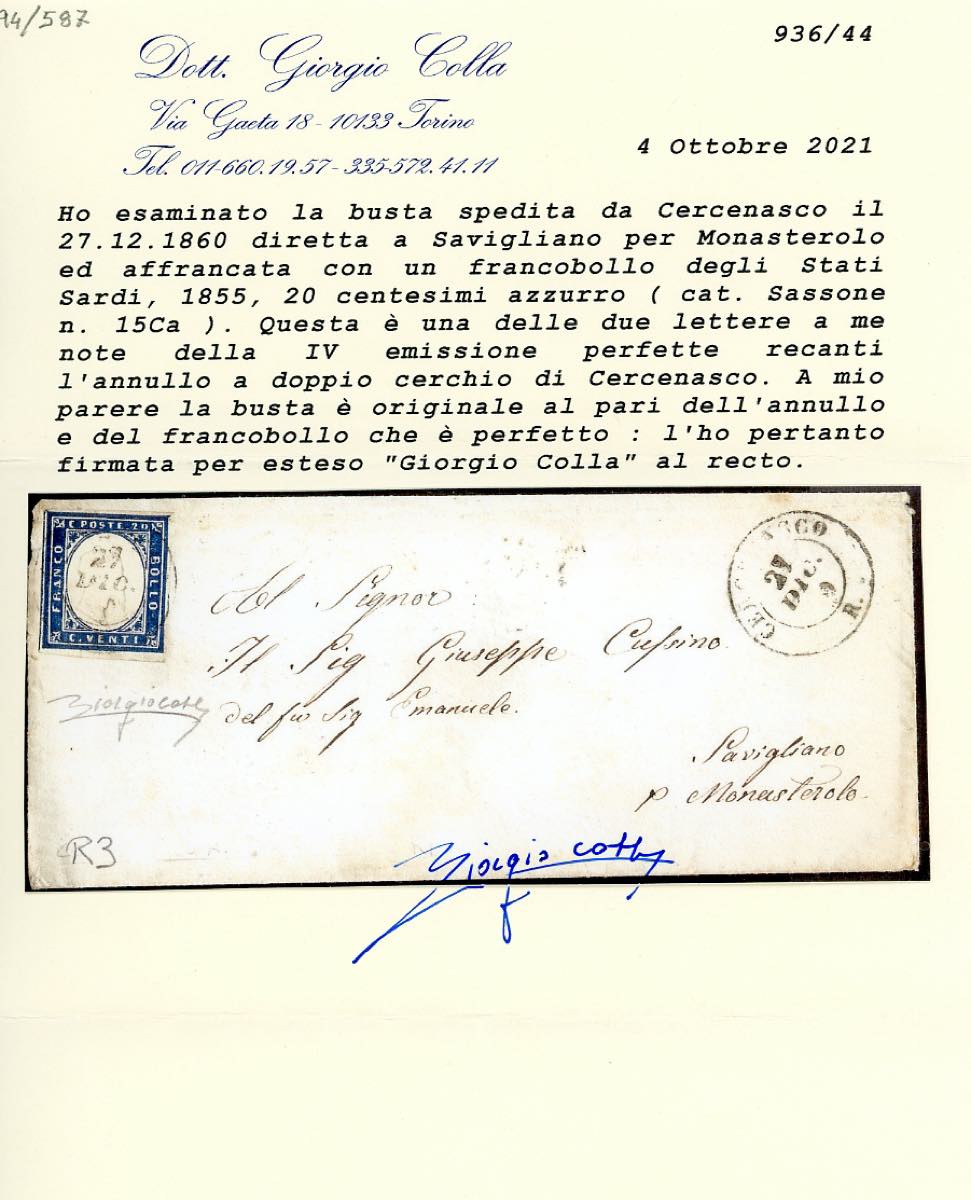 94/587
936/44
Dott. Giorgio Colla
Via Gaeta 18 - 10133 Torino
Tel. 011-660.19.57 - 335-572.41.11
4 Ottobre 2021
Ho esaminato la busta spedita da Cercenasco il
27.12.1860 diretta a Savigliano per Monasterolo
ed affrancata con un francobollo degli Stati
Sardi, 1855, 20 centesimi azzurro ( cat. Sassone
n. 15Ca ). Questa è una delle due lettere a me
note della IV emissione perfette recanti
l'annullo a doppio cerchio di Cercenasco. A mio
parere la busta è originale al pari dell'annullo
e del francobollo che è perfetto : l'ho pertanto
firmata per esteso "Giorgio Colla" al recto.
C POSTE 20
FRANCO
BOLLO
C. VENTI
27
DIC.
27
DIC.
R.
Al Signor
Il Sig Giuseppe Cussino
del fu Sig Emanuele.
Savigliano
p Monasterolo.
Giorgio Colla
R3
Giorgio Colla